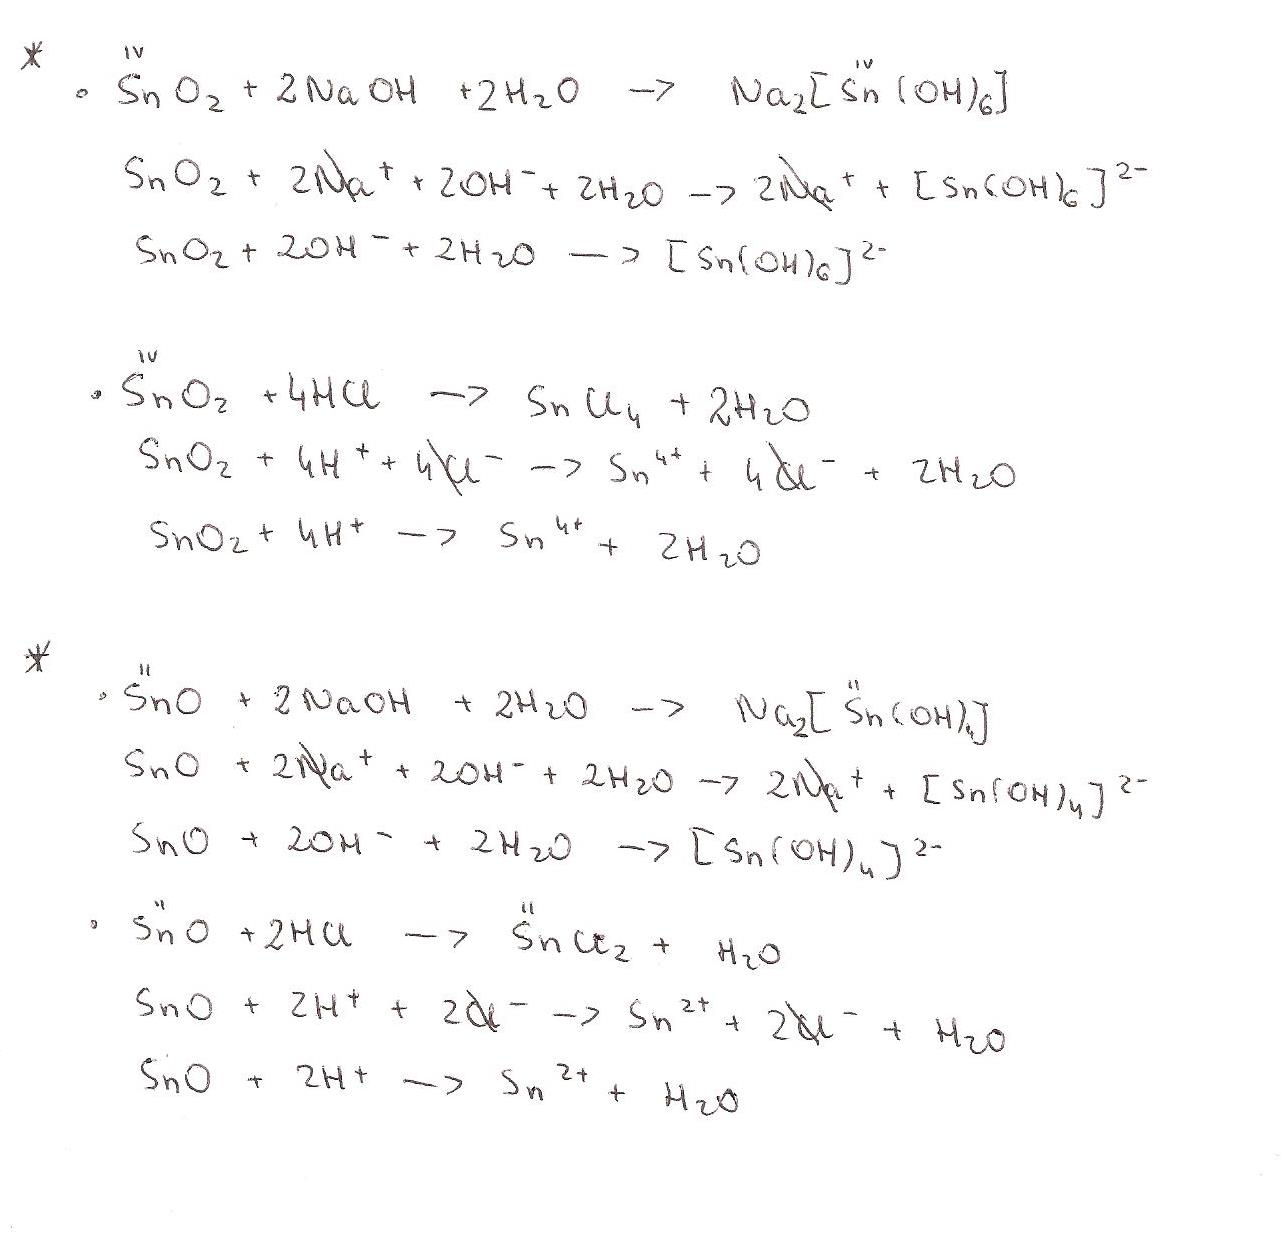 * IV
• SnO₂ + 2NaOH + 2H₂O -> Na₂[Sn(OH)₆] IV
SnO₂ + 2Na⁺ + 2OH⁻ + 2H₂O -> 2Na⁺ + [Sn(OH)₆]²⁻
SnO₂ + 2OH⁻ + 2H₂O -> [Sn(OH)₆]²⁻
IV
• SnO₂ + 4HCl -> SnCl₄ + 2H₂O
SnO₂ + 4H⁺ + 4Cl⁻ -> Sn⁴⁺ + 4Cl⁻ + 2H₂O
SnO₂ + 4H⁺ -> Sn⁴⁺ + 2H₂O
* II II
• SnO + 2NaOH + 2H₂O -> Na₂[Sn(OH)₄]
SnO + 2Na⁺ + 2OH⁻ + 2H₂O -> 2Na⁺ + [Sn(OH)₄]²⁻
SnO + 2OH⁻ + 2H₂O -> [Sn(OH)₄]²⁻
II II
• SnO + 2HCl -> SnCl₂ + H₂O
SnO + 2H⁺ + 2Cl⁻ -> Sn²⁺ + 2Cl⁻ + H₂O
SnO + 2H⁺ -> Sn²⁺ + H₂O